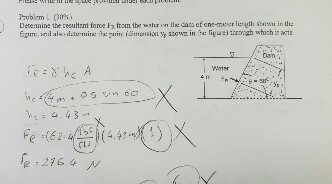 Please write in the space provided under each problem.
Problem 1. (30%)
Determine the resultant force FR from the water on the dam of one-meter length shown in the
figure, and also determine the point (dimension yp shown in the figure) through which it acts.
Dam
Water
4 m
FR
θ = 60°
yp
FR = γ hc A
hc = 4m + 0.5 sin 60
hc = 4.43 m
FR = (62.4 lbf/ft³)(4.43 m)(1)
FR = 276.4 N